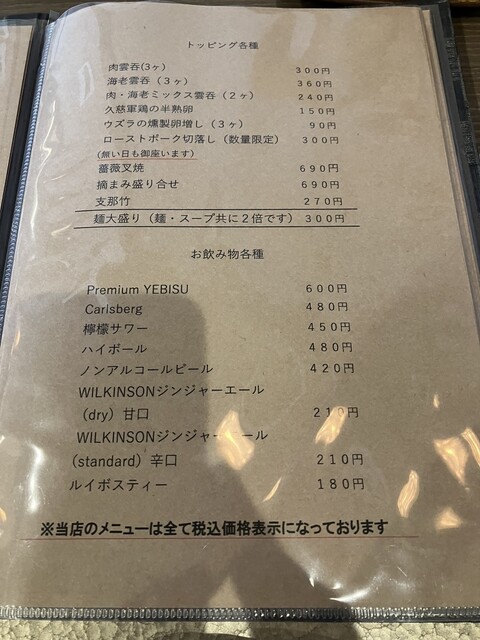 トッピング各種
肉雲呑(3ヶ) 300円
海老雲呑（3ヶ） 360円
肉・海老ミックス雲呑（2ヶ） 240円
久慈軍鶏の半熟卵 150円
ウズラの燻製卵増し（3ヶ） 90円
ローストポーク切落し（数量限定） 300円
(無い日も御座います)
薔薇叉焼 690円
摘まみ盛り合せ 690円
支那竹 270円
麺大盛り（麺・スープ共に2倍です）300円
お飲み物各種
Premium YEBISU 600円
Carlsberg 480円
檸檬サワー 450円
ハイボール 480円
ノンアルコールビール 420円
WILKINSONジンジャーエール
（dry）甘口 210円
WILKINSONジンジャーエール
(standard）辛口 210円
ルイボスティー 180円
※当店のメニューは全て税込価格表示になっております